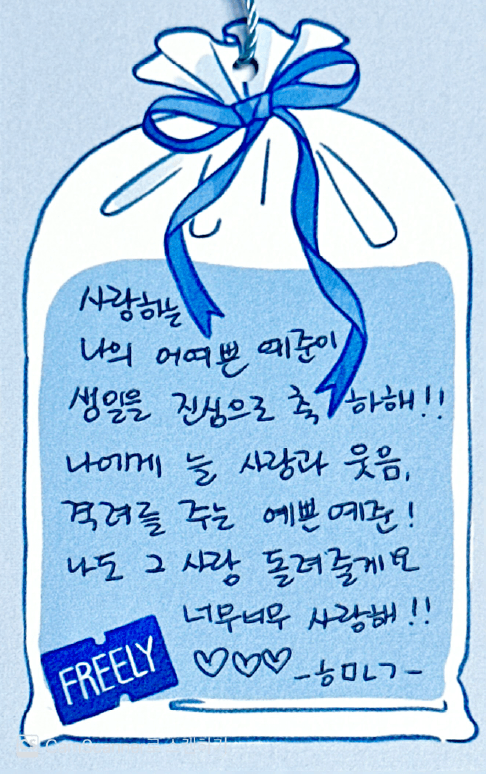 사랑하는
나의 어여쁜 예준이
생일을 진심으로 축하해!!
나에게 늘 사랑과 웃음,
격려를 주는 예쁜 예준!
나도 그 사랑 돌려줄게요
너무너무 사랑해!!
♡♡♡ -ㅎㅁㄴㄱ-
FREELY